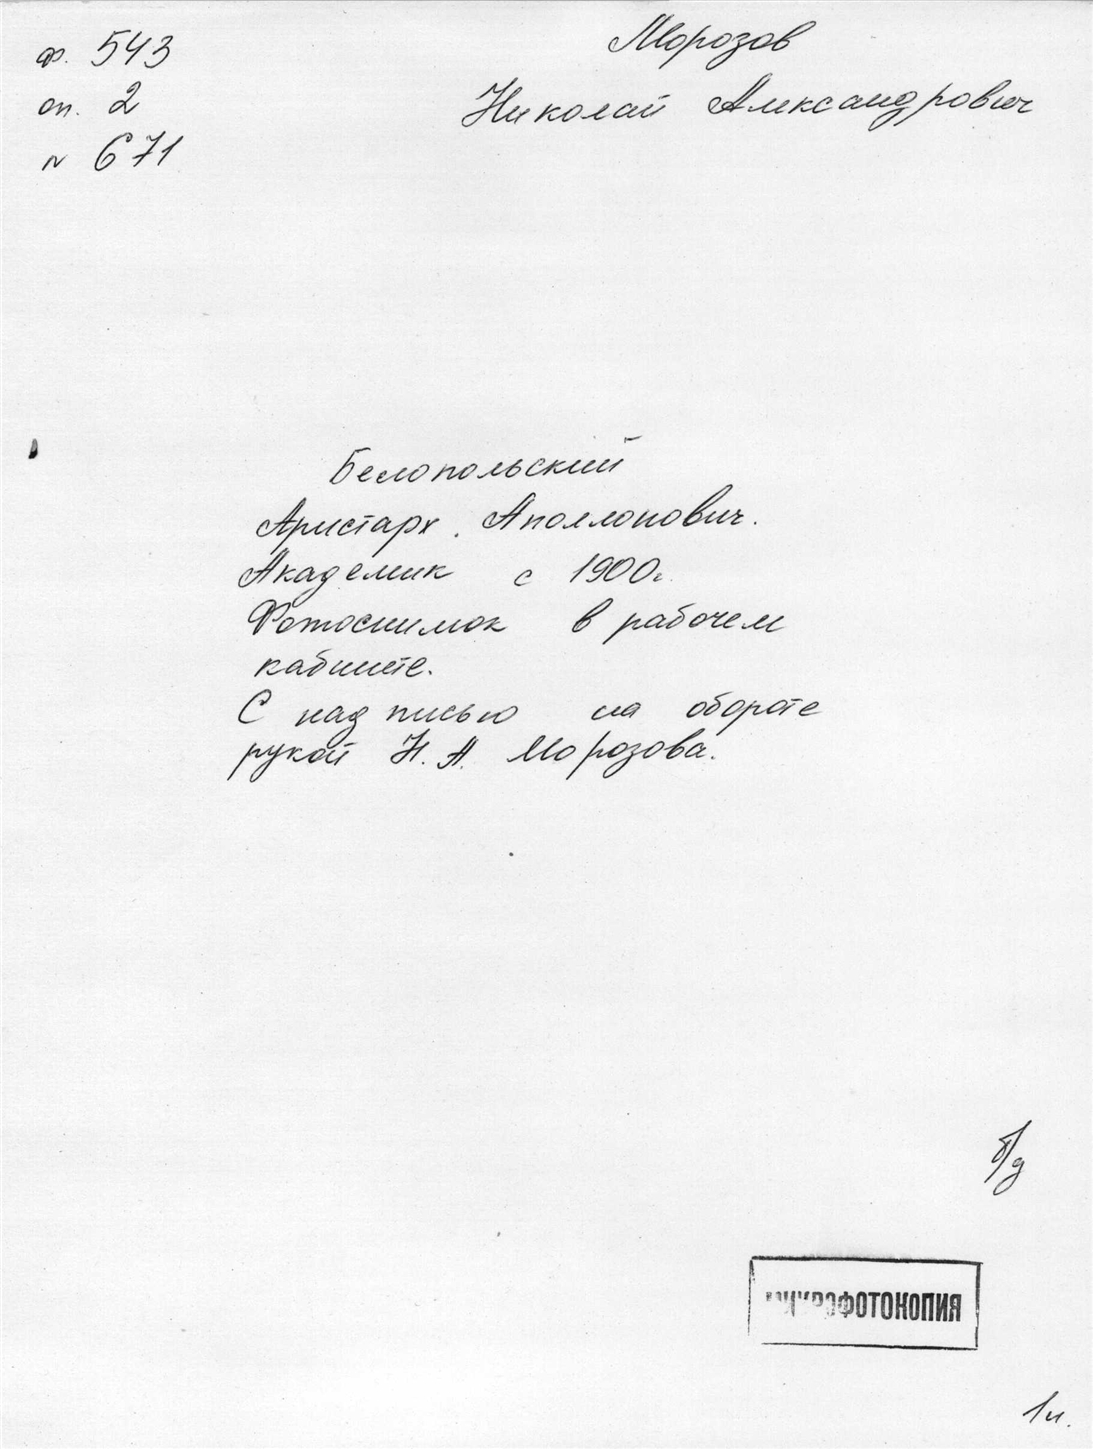 ф. 543
оп. 2
N 671
Морозов
Николай Александрович
Белопольский
Аристарх Аполлонович.
Академик с 1900г.
Фотоснимок в рабочем
кабинете.
С надписью на обороте
рукой Н. А. Морозова.
б/д
МИКРОФОТОКОПИЯ
1л.